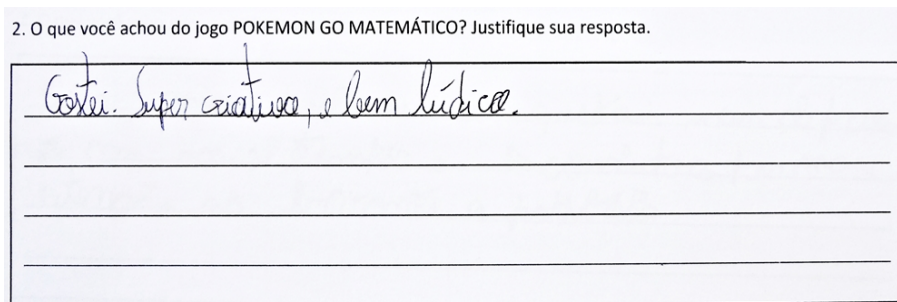 2. O que você achou do jogo POKEMON GO MATEMÁTICO? Justifique sua resposta.
Gostei. Super criativoo, e bem lúdico.